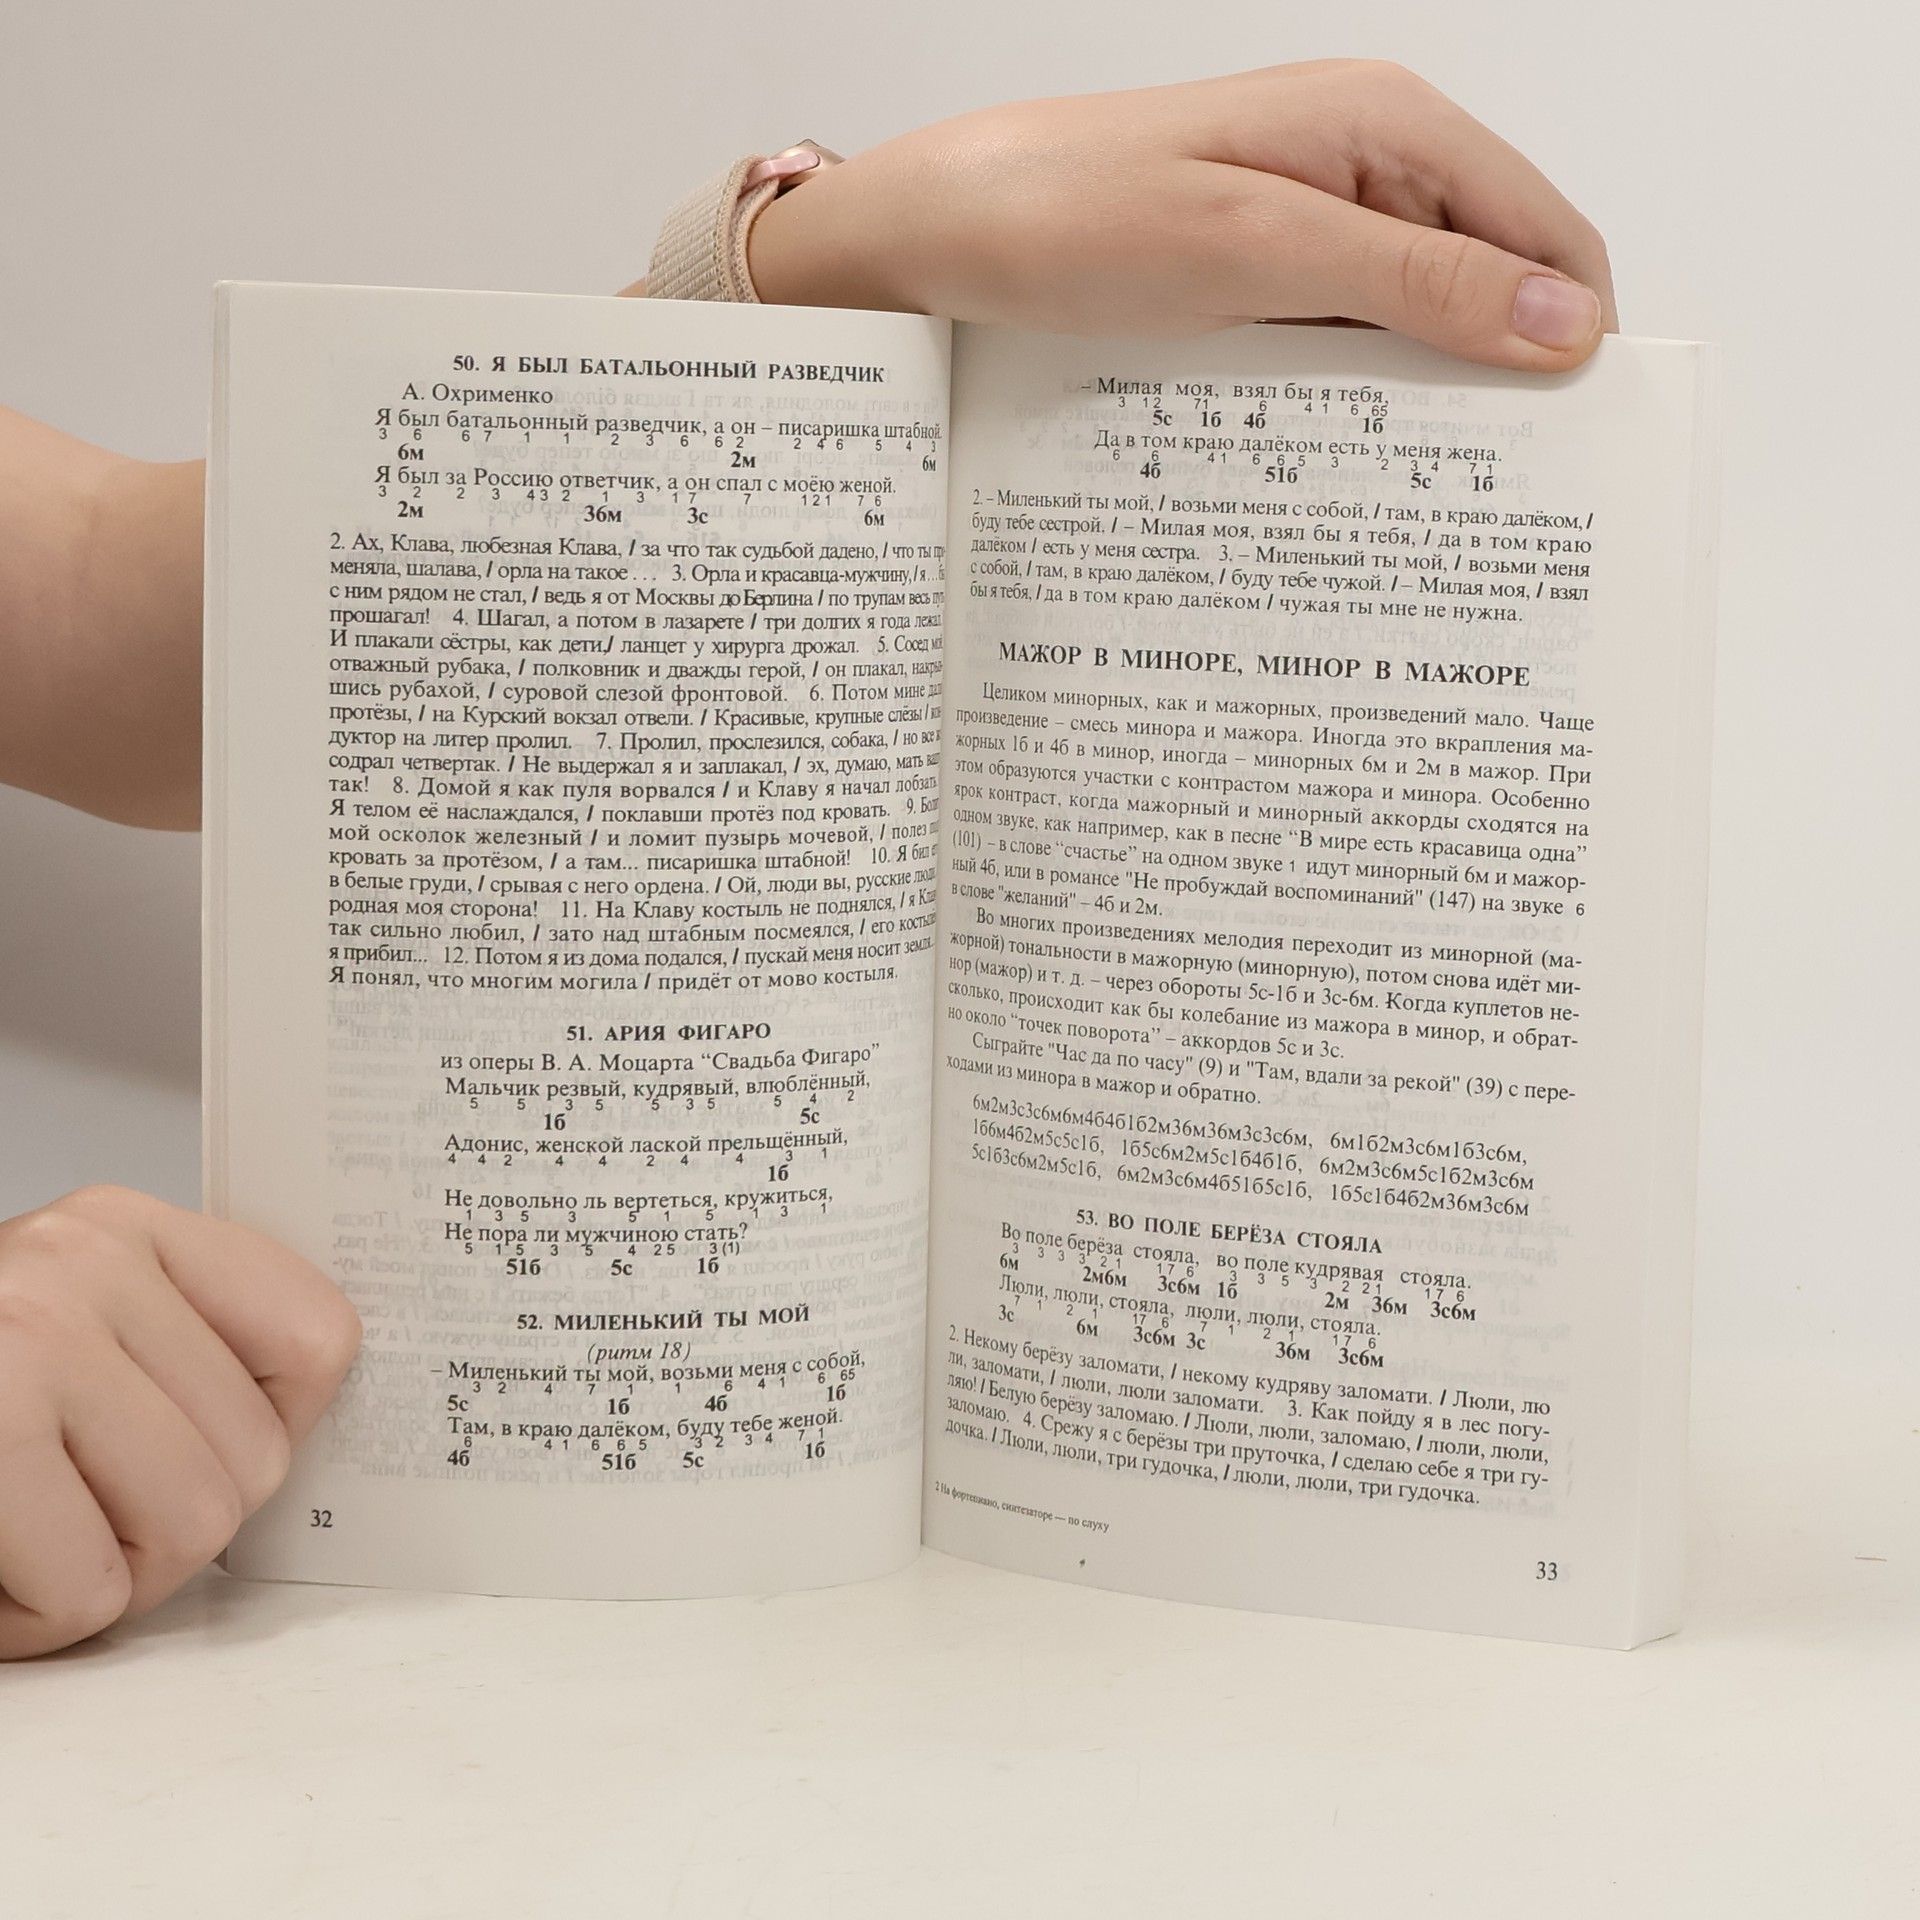 50. Я БЫЛ БАТАЛЬОННЫЙ РАЗВЕДЧИК
А. Охрименко
Я был батальонный разведчик, а он – писаришка штабной.
3 6 6 7 1 1 2 3 6 6 2 2 4 6 5 4 3
6м 2м 6м
Я был за Россию ответчик, а он спал с моёю женой.
3 2 2 3 4 3 2 1 3 1 7 7 1 2 1 7 6
2м 36м 3с 6м
2. Ах, Клава, любезная Клава, / за что так судьбой дадено, / что ты
меняла, шалава, / орла на такое . . . 3. Орла и красавца-мужчину, / я...
с ним рядом не стал, / ведь я от Москвы до Берлина / по трупам весь
прошагал! 4. Шагал, а потом в лазарете / три долгих я года лежал.
И плакали сёстры, как дети,/ ланцет у хирурга дрожал. 5. Сосед
отважный рубака, / полковник и дважды герой, / он плакал, накры-
шись рубахой, / суровой слезой фронтовой. 6. Потом мине
протёзы, / на Курский вокзал отвели. / Красивые, крупные слёзы /
дуктор на литер пролил. 7. Пролил, прослезился, собака, / но все
содрал четвертак. / Не выдержал я и заплакал, / эх, думаю, мать
так! 8. Домой я как пуля ворвался / и Клаву я начал лобзать.
Я телом её наслаждался, / поклавши протёз под кровать. 9.
мой осколок железный / и ломит пузырь мочевой, / полез
кровать за протёзом, / а там... писаришка штабной! 10. Я бил
в белые груди, / срывая с него ордена. / Ой, люди вы, русские
родная моя сторона! 11. На Клаву костыль не поднялся, / я
так сильно любил, / зато над штабным посмеялся, / его
я прибил... 12. Потом я из дома подался, / пускай меня носит
Я понял, что многим могила / придёт от мово костыля.
51. АРИЯ ФИГАРО
из оперы В. А. Моцарта “Свадьба Фигаро”
Мальчик резвый, кудрявый, влюблённый,
5 5 3 5 5 3 5 5 4 2
1б 5с
Адонис, женской лаской прельщённый,
4 4 2 4 4 2 4 4 3 1
1б
Не довольно ль вертеться, кружиться,
1 3 5 3 5 1 5 1 3 1
Не пора ли мужчиною стать?
5 1 5 3 5 4 2 5 3 (1)
51б 5с 1б
52. МИЛЕНЬКИЙ ТЫ МОЙ
(ритм 18)
– Миленький ты мой, возьми меня с собой,
3 2 4 7 1 1 6 4 1 6 65
5с 1б 4б 1б
Там, в краю далёком, буду тебе женой.
6 4 1 6 6 5 3 2 3 4 7 1
4б 51б 5с 1б
32
– Милая моя, взял бы я тебя,
3 1 2 71 6 4 1 6 65
5с 1б 4б 1б
Да в том краю далёком есть у меня жена.
6 6 4 1 6 6 5 3 2 3 4 7 1
4б 51б 5с 1б
2. – Миленький ты мой, / возьми меня с собой, / там, в краю далёком, /
буду тебе сестрой. / – Милая моя, взял бы я тебя, / да в том краю
далёком / есть у меня сестра. 3. – Миленький ты мой, / возьми меня
с собой, / там, в краю далёком, / буду тебе чужой. / – Милая моя, / взял
бы я тебя, / да в том краю далёком / чужая ты мне не нужна.
МАЖОР В МИНОРЕ, МИНОР В МАЖОРЕ
Целиком минорных, как и мажорных, произведений мало. Чаще
произведение – смесь минора и мажора. Иногда это вкрапления ма-
жорных 1б и 4б в минор, иногда – минорных 6м и 2м в мажор. При
этом образуются участки с контрастом мажора и минора. Особенно
ярок контраст, когда мажорный и минорный аккорды сходятся на
одном звуке, как например, как в песне “В мире есть красавица одна”
(101) – в слове “счастье” на одном звуке 1 идут минорный 6м и мажор-
ный 4б, или в романсе "Не пробуждай воспоминаний" (147) на звуке 6
в слове "желаний" – 4б и 2м.
Во многих произведениях мелодия переходит из минорной (ма-
жорной) тональности в мажорную (минорную), потом снова идёт ми-
нор (мажор) и т. д. – через обороты 5с-1б и 3с-6м. Когда куплетов не-
сколько, происходит как бы колебание из мажора в минор, и обрат-
но около “точек поворота” – аккордов 5с и 3с.
Сыграйте "Час да по часу" (9) и "Там, вдали за рекой" (39) с пере-
ходами из минора в мажор и обратно.
6м2м3с3с6м6м4б4б1б2м36м36м3с3с6м, 6м1б2м3с6м1б3с6м,
1б6м4б2м5с5с1б, 1б5с6м2м5с1б4б1б, 6м2м3с6м5с1б2м3с6м
5с1б3с6м2м5с1б, 6м2м3с6м4б51б5с1б, 1б5с1б4б2м36м3с6м
53. ВО ПОЛЕ БЕРЁЗА СТОЯЛА
Во поле берёза стояла, во поле кудрявая стояла.
3 3 3 3 2 1 1 7 6 3 3 5 3 2 2 1 1 7 6
6м 2м6м 3с6м 1б 2м 36м 3с6м
Люли, люли, стояла, люли, люли, стояла.
7 1 2 1 17 6 7 1 2 1 1 7 6
3с 6м 3с6м 3с 36м 3с6м
2. Некому берёзу заломати, / некому кудряву заломати. / Люли, лю
ли, заломати, / люли, люли заломати. 3. Как пойду я в лес погу-
ляю! / Белую берёзу заломаю. / Люли, люли, заломаю, / люли, люли,
заломаю. 4. Срежу я с берёзы три пруточка, / сделаю себе я три гу-
дочка. / Люли, люли, три гудочка, / люли, люли, три гудочка.
2 На фортепиано, синтезаторе — по слуху
33